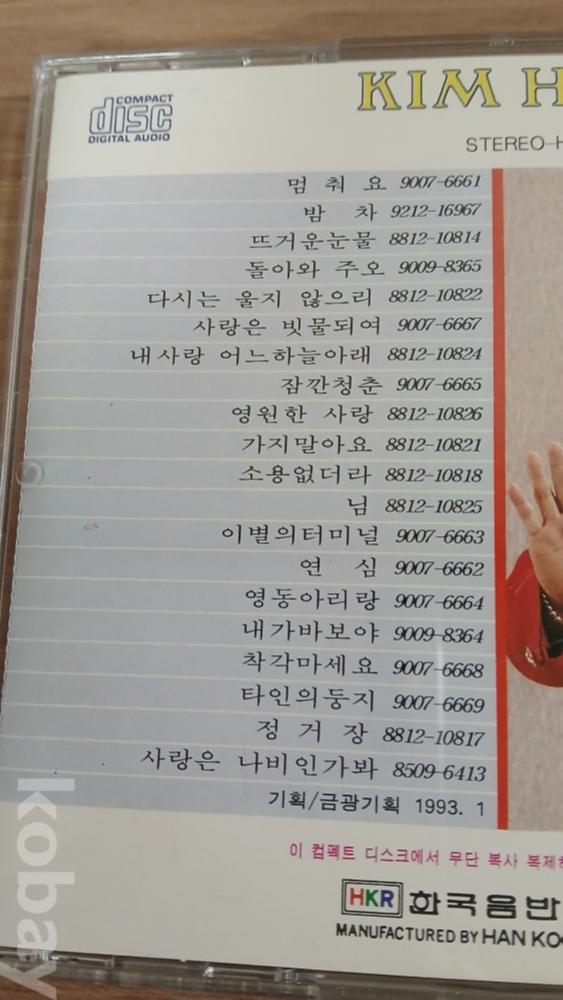 COMPACT
disc
DIGITAL AUDIO
KIM H
STEREO-H
멈 춰 요 9007-6661
밤 차 9212-16967
뜨거운눈물 8812-10814
돌아와 주오 9009-8365
다시는 울지 않으리 8812-10822
사랑은 빗물되여 9007-6667
내사랑 어느하늘아래 8812-10824
잠깐청춘 9007-6665
영원한 사랑 8812-10826
가지말아요 8812-10821
소용없더라 8812-10818
님 8812-10825
이별의터미널 9007-6663
연 심 9007-6662
영동아리랑 9007-6664
내가바보야 9009-8364
착각마세요 9007-6668
타인의둥지 9007-6669
정 거 장 8812-10817
사랑은 나비인가봐 8509-6413
기획/금광기획 1993. 1
이 컴팩트 디스크에서 무단 복사 복제하
HKR 한국음반
MANUFACTURED BY HAN KO
kobay